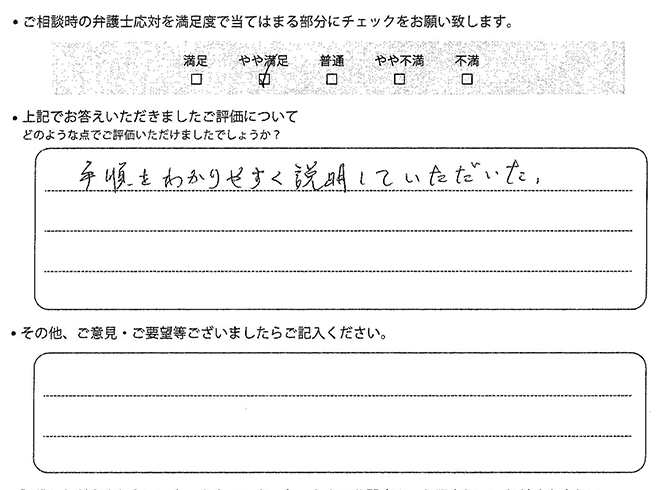 ・ご相談時の弁護士応対を満足度で当てはまる部分にチェックをお願い致します。
満足 やや満足 普通 やや不満 不満
□ ☑ □ □ □
・上記でお答えいただきましたご評価について
どのような点でご評価いただけましたでしょうか？
手順をわかりやすく説明していただいた。
・その他、ご意見・ご要望等ございましたらご記入ください。